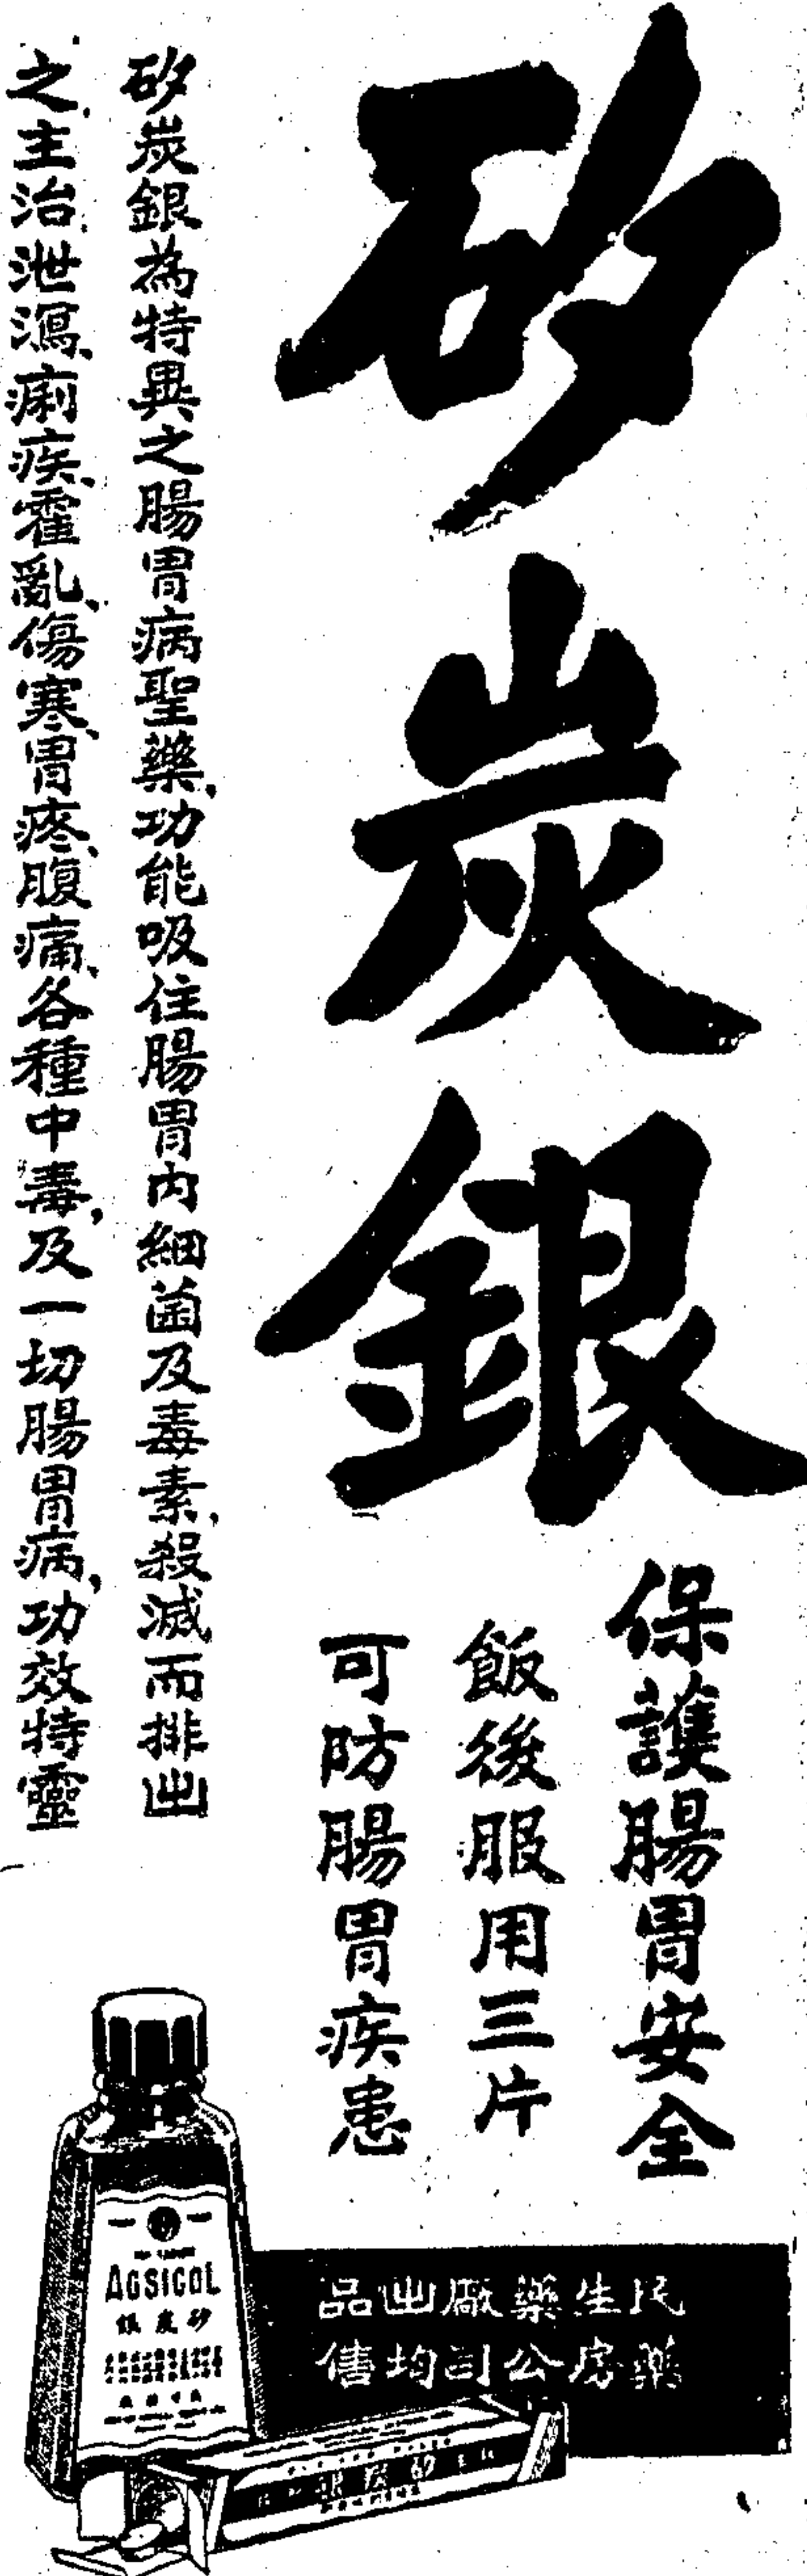 矽炭銀
保護腸胃安全
飯後服用三片
可防腸胃疾患
矽炭銀為特異之腸胃病聖藥,功能吸住腸胃內細菌及毒素,殺滅而排出
之,主治泄瀉、痢疾、霍亂、傷寒、胃疼、腹痛、各種中毒,及一切腸胃病,功效特靈
民生藥廠出品
藥房公司均售
AGSICOL
矽炭銀
矽炭銀